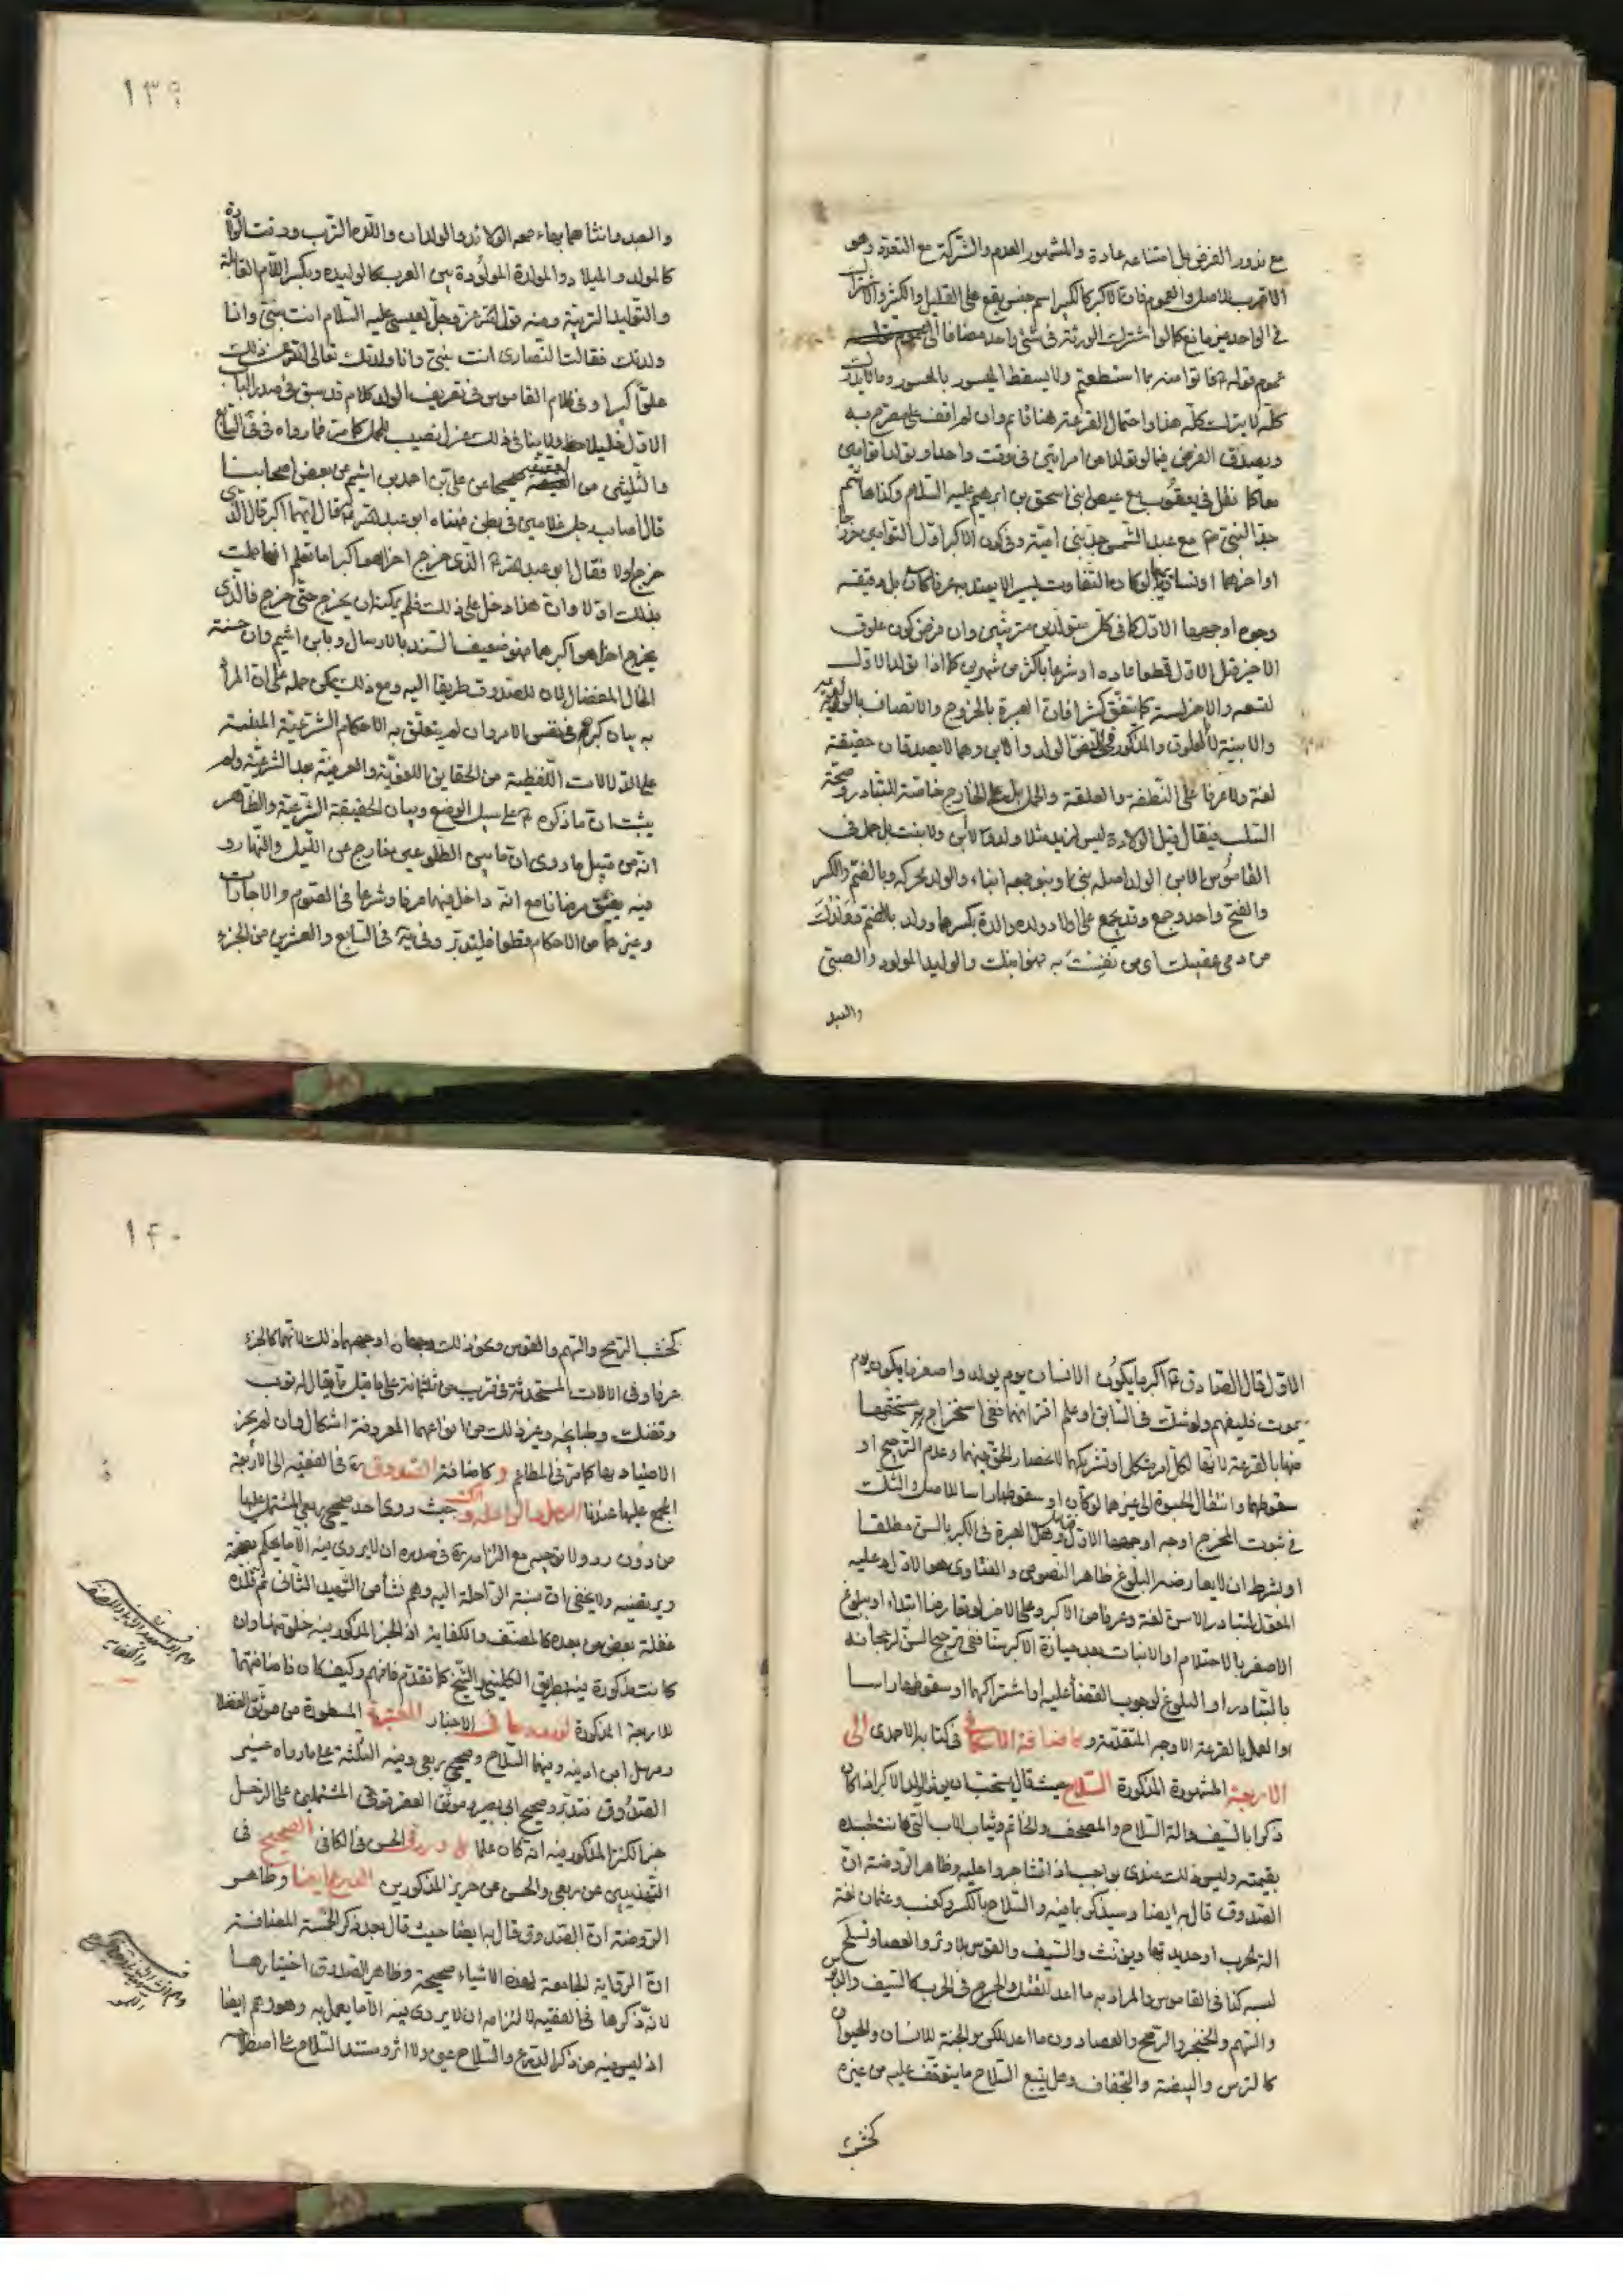 مع ندور الفرض بل امتناعه عادة والمشهور العدم والشركة مع التعدد وهو
الاقرب للاصل والعموم فان الاكبر كالكبير اسم جنس يقع على القليل والكثير والاشتراك
في الواحد غير مانع كما لو اشترك الورثة في شئ واحد مضافا الى
عموم قوله فاتوا منه ما استطعتم ولا يسقط الميسور بالمعسور وما لا يدرك
كله لا يترك كله هذا واحتمال القرعة هنا قائم وان لم اقف على مصرح به
ويصدق الفرض فيما لو تولدا من امراتين في وقت واحد او تولدا توامين
معا كما نقل في يعقوب مع عيص ابني اسحق بن ابرهيم عليه السلام وكذا هاشم
جد النبي ص مع عبد الشمس جد بني امية وفي كون الاكبر اول التوامين خروجا
او اخرهما او تساويهما لو كان التفاوت يسيرا لا يعتد به عرفا كان بل دقيقة
وجوه اوجهها الاول كما في كل متولدين مترتبين وان فرض كون علوق
الاخير قبل الاول قطعا عادة او شرعا باكثر من شهرين كما اذا تولد الاول
لتسعه والاخر لستة كما يتفق كثيرا فان العبرة بالخروج والاتصاف بالولدية
والابنية لا بالعلوق والمذكور في النص الولد والابن وهما لا يصدقان حقيقة
لغة ولا عرفا على النطفة والعلقة والحمل بل على الخارج خاصة للتبادر وصحة
السلب فيقال قبل الولادة ليس لزيد مثلا ولد ولا ابن ولا بنت بل حمل في
القاموس الابن الولد اصله بني او بنو جمعه ابناء والولد محركة وبالضم والكسر
والفتح واحد وجمع وقد يجمع على اولاد وولدة والدة بكسرهما وولد بالضم وولدك
من دمى عقبيك اي من نفست به فهو ابنك والوليد المولود والصبي
والعبد
١٣٩
والعبد وانثاهما بهاء جمعه الولائد والولدان واللدة الترب ووقت الولادة
كالمولد والميلاد والمولدة المولودة بين العرب كالوليدة وبكسر اللام القابلة
والتوليد التربية ومنه قول الله عز وجل لعيسى عليه السلام انت نبيي وانا
ولدتك فقالت النصارى انت بنيي وانا ولدتك تعالى الله عن ذلك
علوا كبيرا وفي كلام القاموس في تعريف الولد كلام قد سبق في صدر الباب
الاول فليلاحظ ولا ينافي ذلك عزل نصيب للحمل كما مر فما رواه في في التاسع
والثلثين من العقيقة صحيحا عن علي بن احمد بن اشيم عن بعض اصحابنا
قال اصاب رجل غلامين في بطن فهناه ابو عبد الله ع ثم قال ايهما اكبر قال الذي
خرج اولا فقال ابو عبد الله ع الذي خرج اخرا هو اكبر اما تعلم انها حملت
بذلك اولا وان هذا دخل على ذلك فلم يمكنه ان يخرج حتى خرج فالذي
يخرج اخرا هو اكبرهما فهو ضعيف السند بالارسال وبابن اشيم وان حسنه
الخال المفضال لان للصدوق طريقا اليه ومع ذلك يمكن حمله على ان المراد
به بيان كبرهم في نفس الامر وان لم يتعلق به الاحكام الشرعية المبنية
على الدلالات اللفظية من الحقايق اللغوية والعرفية بعد الشرعية ولم
يثبت ان ما ذكره ع على سبيل الوضع وبيان الحقيقة الشرعية والظاهر
انه من قبيل ما روي ان ما بين الطلوعين خارج عن الليل والنهار و
فيه يعتق مرضانا مع انه داخل فيهما عرفا وشرعا في الصوم والاجارات
وغيرهما من الاحكام قطعا فليتدبر وفي يه في السابع والعشرين من الجزء
الاول قال الصادق ع اكبر ما يكون الانسان يوم يولد واصغر ما يكون يوم
يموت فليفهم ولو شك في السابق او علم اقترانهما ففي استخراج مستحقها
منهما بالقرعة لانها لكل امر مشكل او تشريكهما لانحصار الحق فيهما وعدم الترجيح او
سقوطها وانتقال الحبوة الى غيرهما لو كان او سقوطها راسا للاصل والشك
في ثبوت المخرج اوجه اوجهها الاول وهل العبرة في الكبر بالسن مطلقا
او بشرط ان لا يعارضه البلوغ ظاهر النصوص والفتاوى هو الاول وعليه
المعول لتبادر الاسن لغة وعرفا من الاكبر وعلى الاخر لو تعارضا ابتداء او ببلوغ
الاصغر بالاحتلام او الانبات بعد حيازة الاكبر سنا ففي ترجيح السن لرجحانه
بالتبادر او البلوغ لوجوب القضأ عليه او اشتراكهما او سقوطها راسا
او العمل بالقرعة الاوجه المتقدمة وكاضافة الاسكافي في كتابه الاحمدي الى
الاربعة المشهورة المذكورة السلاح حيث قال يستحب ان يؤثر الولد الاكبر اذا كان
ذكرا بالسيف والة السلاح والمصحف والخاتم وثياب الاب التي كانت لجسده
بقيمته وليس ذلك عندي بواجب اذا تشاجروا عليه وظاهر الروضة ان
الصدوق قال به ايضا وسيذكر ما فيه والسلاح بالكسر وكعنب وعثمان لغة
الة الحرب او حديدتها ويؤنث والسيف والقوس بلا وتر والعصا وتسلح
لبسه كذا في القاموس والمراد به ما اعد للقتل والجرح في الحرب كالسيف والقوس
والسهم والخنجر والرمح والعصا دون ما اعد للكن والجنة للانسان والحيوان
كالترس والبيضة والتجفاف وهل يتبع السلاح ما يتوقف عليه من غيره
كخشب
١٤٠
كخشب الرمح والسهم والقوس ونحو ذلك وجهان اوجههما ذلك لانهما كالجزء
عرفا وفي الالات المستحدثة في قريب من ثلثمائة على ما قيل مما يقال له توپ
وتفنك وطپانچه وغير ذلك من انواعهما المعروفة اشكال وان لم يجز
الاصطياد بها كما مر في المطاعم وكاضافة الصدوق ره في الفقيه الى الاربعة
المجمع عليها عندنا الرحل والراحلة حيث روى احد صحيحي ربعي المشتمل عليها
من دون رد ولا توجيه مع التزامه في صدره ان لا يروي فيه الا ما يحكم بصحته
ويرتضيه ولا يخفى ان نسبة الراحلة اليه وهم نشأ من الشهيد الثاني ثم تلمذه
غفلة بعض من بعده كالمصنف والكفاية اذ الخبر المذكور فيه خلو عنها وان
كانت مذكورة فيه بطريق الكليني والشيخ كما تقدم فافهم وكيف كان فاضافتهما
للاربعة المذكورة لورودهما في الاخبار المعتبرة المسطورة من موثق الفضلا
ومرسل ابن اذينه وفيهما السلاح وصحيح ربعي وفيه الثلثة على ما رواه غير
الصدوق فتدبر وصحيح ابي بصير وموثق العقرقوفي المشتملين على الرحل
خبر الكنز المذكور فيه انه كان علما
التهذيبين عن ربعي والحسن عن حريز المذكورين الدرع ايضا وظاهر
الروضة ان الصدوق قال به ايضا حيث قال بعد ذكر الخمسة المضافة
ان الرواية الجامعة لهذه الاشياء صحيحة وظاهر الصدوق اختيارها
لانه ذكرها في الفقيه لالتزامه ان لا يروي فيه الا ما يعمل به وهو وهم ايضا
اذ ليس فيه من ذكر الدرع والسلاح عين ولا اثر ومستند السلاح على اصطلاح